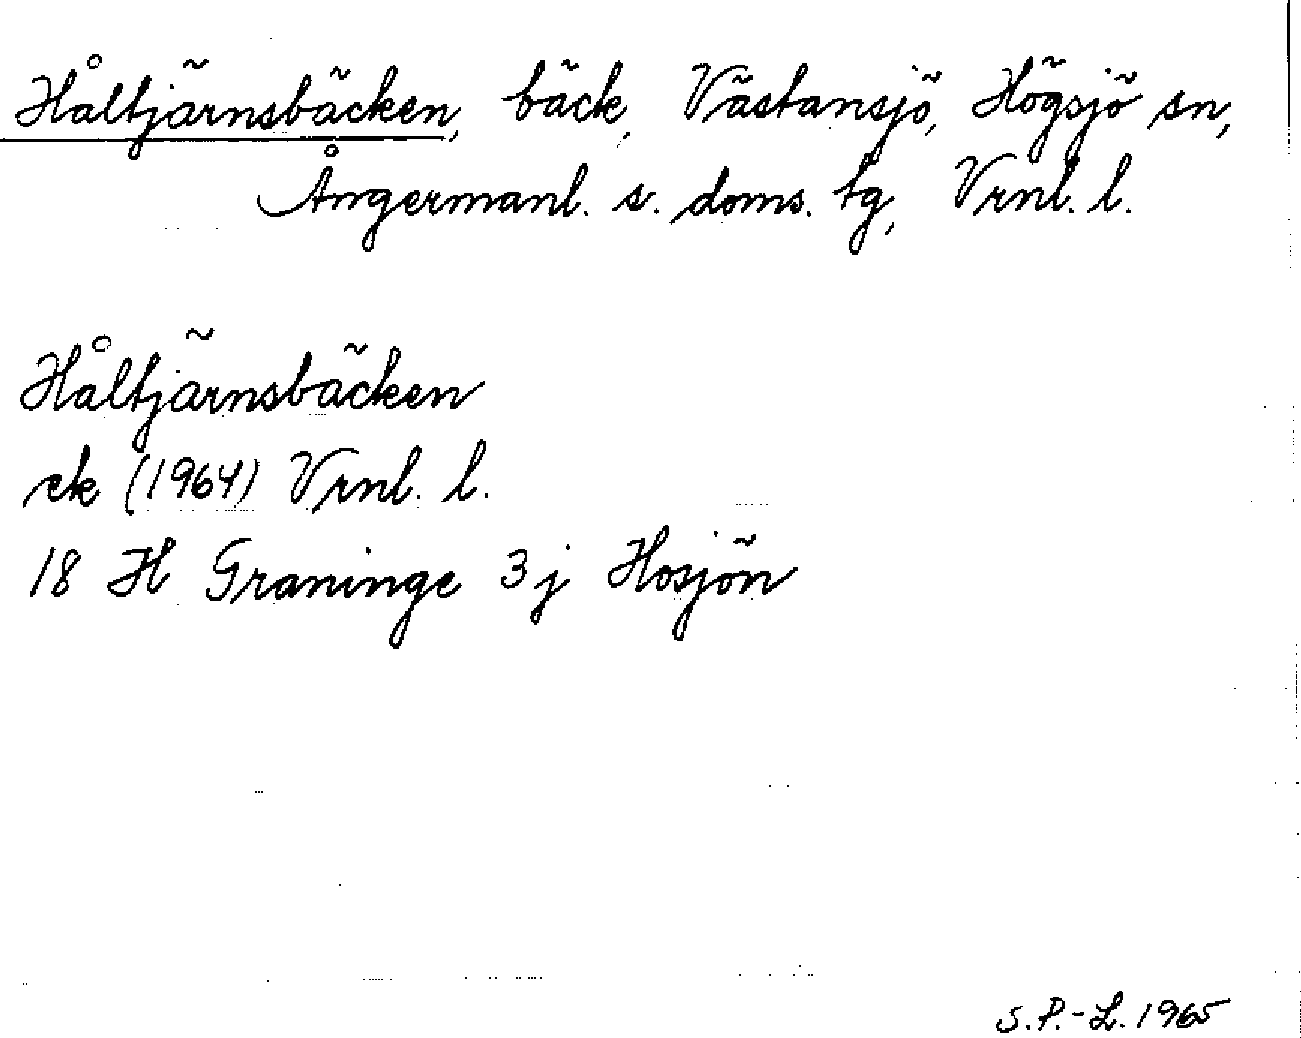 Håltjärnsbäcken, bäck, Västansjö, Högsjö sn,
Ångermanl. s. doms. tg, Vrnl. l.
Håltjärnsbäcken
ek (1964) Vrnl. l.
18 H Graninge 3 j Hosjön
S.P.-L. 1965